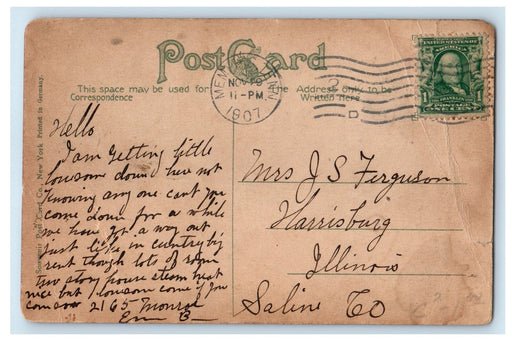 Post Card
This space may be used for
Correspondence
The Address only to be
Written here
UNITED STATES OF
AMERICA
POSTAGE
ONE CENT
MEMPHIS
NOV
11-PM
1907
D
Souvenir Post Card Co. New York Printed in Germany.
Hello
I am getting little
lonsom down here not
Knowing any one cant you
come down for a while
we have got a way out
just like in cuntry big
rent though lots of room
two story house steam heat
nice but lonsom come if you
can 2165 Monroe
Mrs J S Ferguson
Harrisburg
Illinois
Saline Co